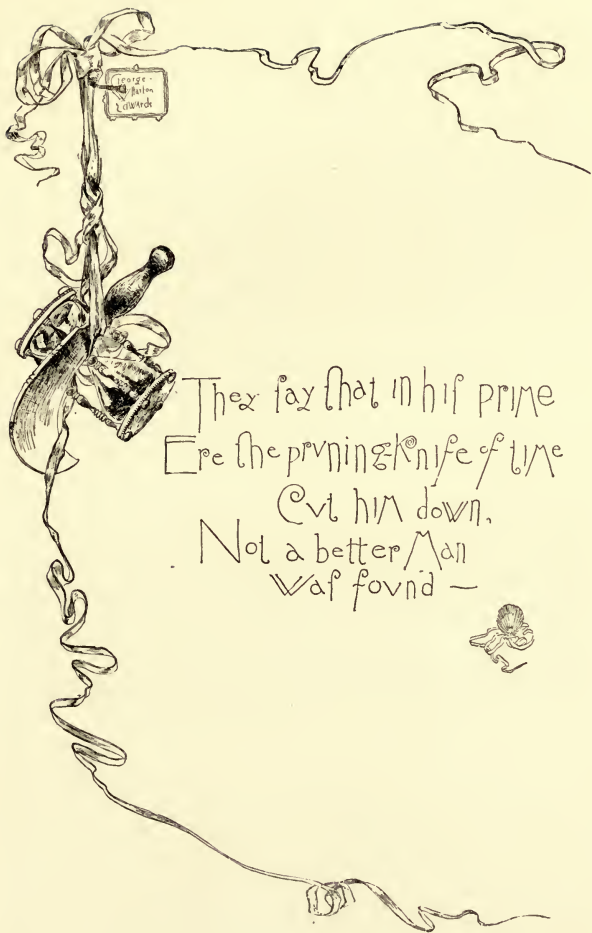 George
Wharton
Edwards
They ſay that in hiſ prime
Ere the prvning-Knife of time
Cvt him down,
Not a better Man
Waſ fovnd —